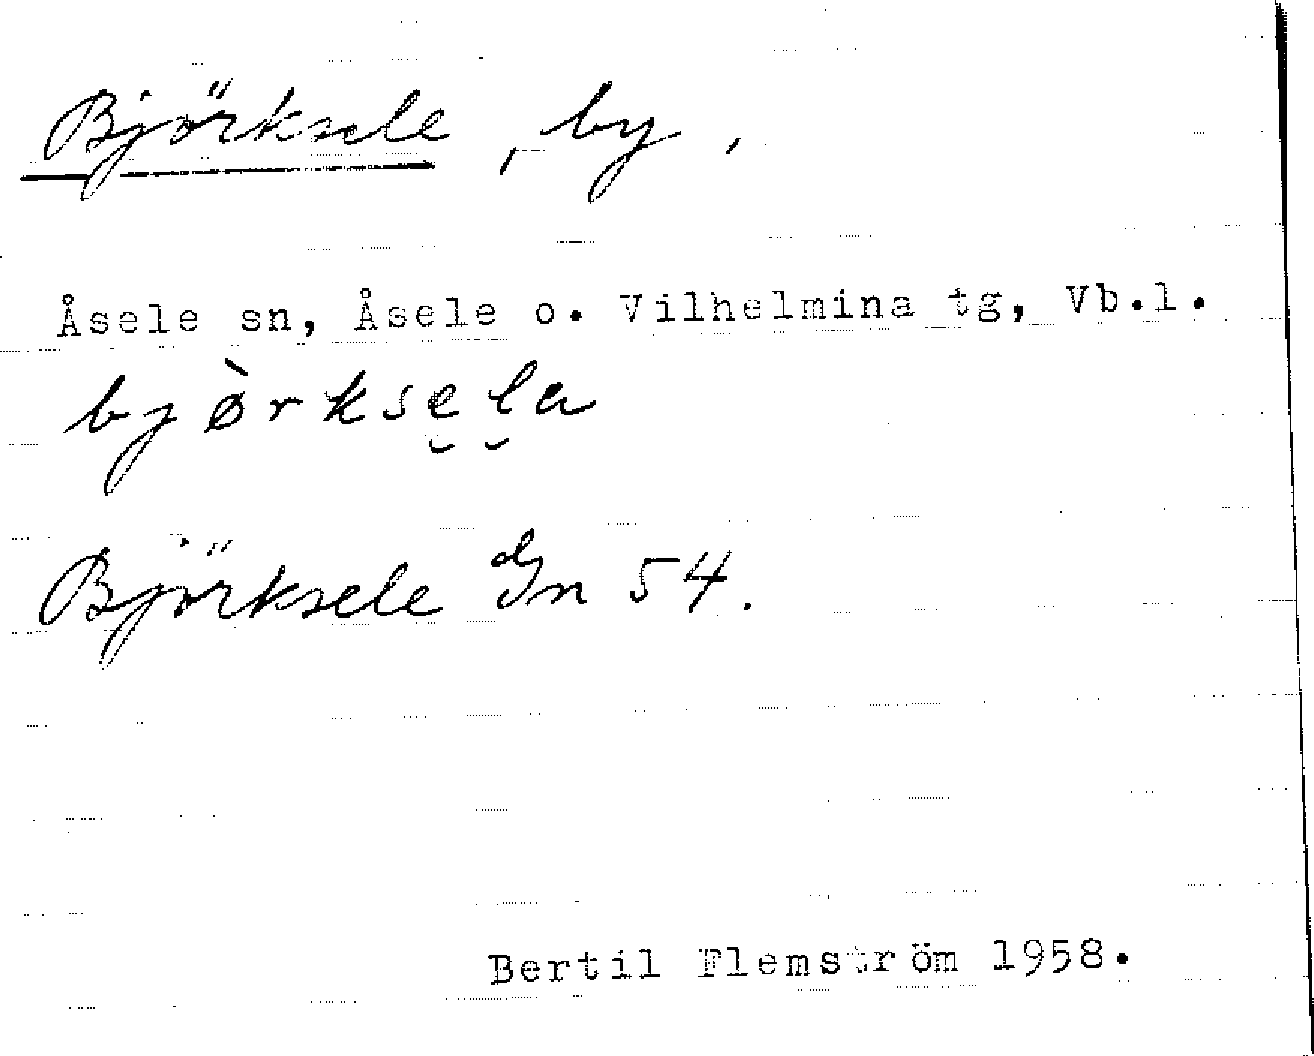 Björksele, by,
Åsele sn, Åsele o. Vilhelmina tg, Vb.l.
bjø̀rkse̮l̮a
Björksele Gn 54.
Bertil Flemström 1958.